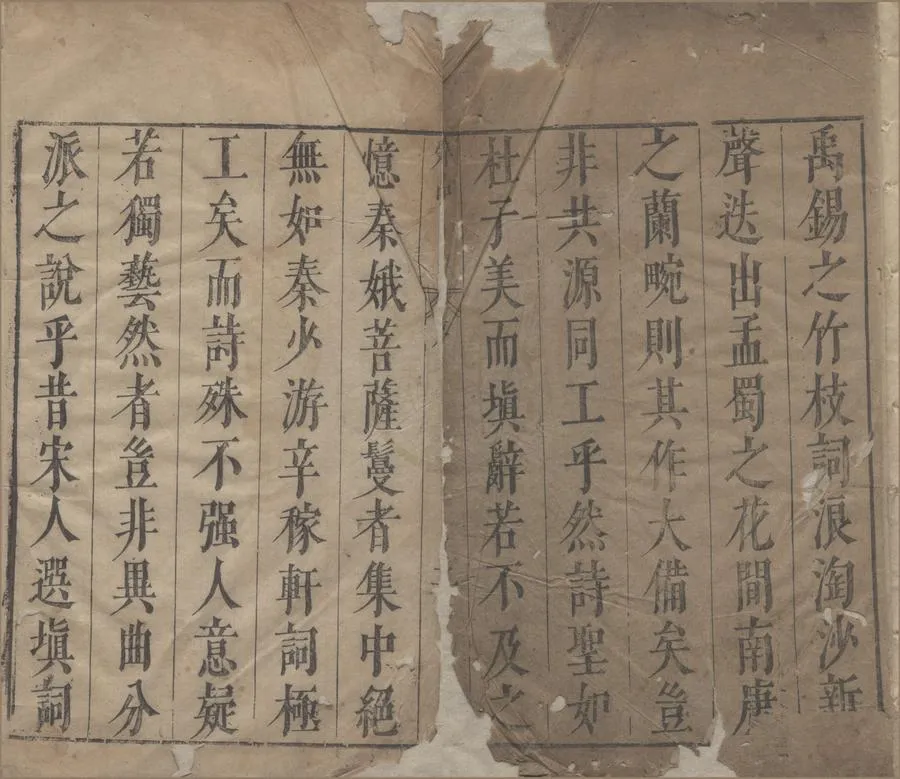 禹錫之竹枝詞浪淘沙新
聲迭出孟蜀之花間南唐
之蘭畹則其作大備矣豈
非共源同工乎然詩聖如
杜子美而塡辭若不及之
憶秦娥菩薩鬘者集中絕
無如秦少游辛稼軒詞極
工矣而詩殊不强人意疑
若獨藝然者豈非異曲分
派之說乎昔宋人選塡詞